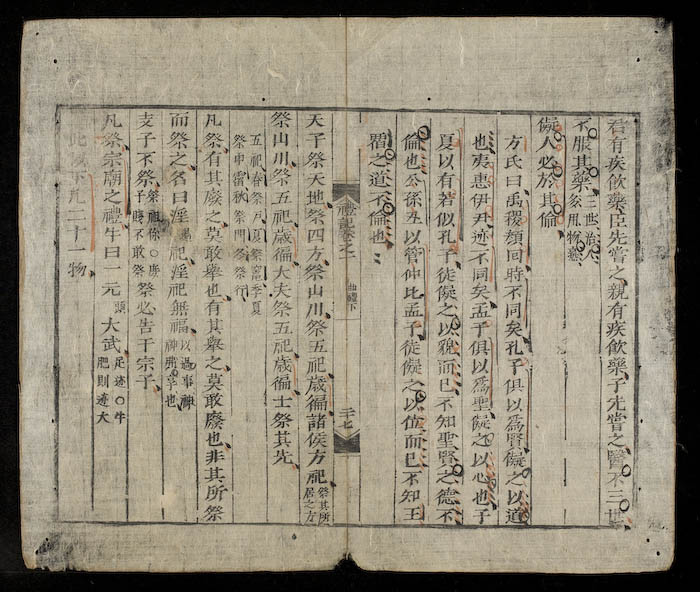 君有疾飲藥臣先嘗之親有疾飲藥子先嘗之醫不三世
不服其藥三世治人多用物熟
儗人必於其倫
方氏曰禹稷顏回時不同矣孔子俱以爲賢儗之以道
也夷惠伊尹迹不同矣孟子俱以爲聖儗之以心也子
夏以有若似孔子徒儗之以貌而已不知聖賢之德不
倫也公孫丑以管仲比孟子徒儗之以位而已不知王
霸之道不倫也
禮記卷之一 曲禮下 二十七
天子祭天地祭四方祭山川祭五祀歲徧諸侯方祀祭其所居之方
祭山川祭五祀歲徧大夫祭五祀歲徧士祭其先
五祀春祭戶夏祭竈季夏
祭中霤秋祭門冬祭行
凡祭有其廢之莫敢舉也有其舉之莫敢廢也非其所祭
而祭之名曰淫過祀淫祀無福以過事神神弗享也
支子不祭祭祖祢○庶子賤不敢祭祭必告于宗子
凡祭宗廟之禮牛曰一元頭大武足迹○牛肥則迹大
此以下凡二十一物